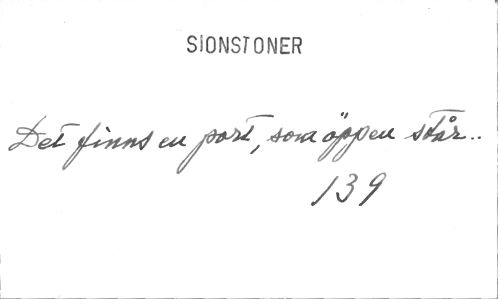 SIONSTONER
Det finns en port, som öppen står..
139